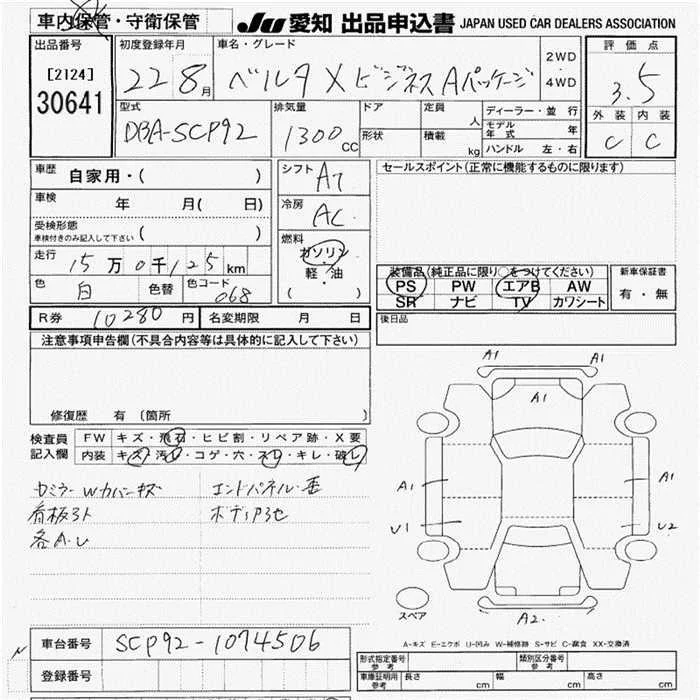 車内保管・守衛保管
JU 愛知 出品申込書 JAPAN USED CAR DEALERS ASSOCIATION
出品番号
[2124]
30641
初度登録年月
22 8月
車名・グレード
ベルタ X ビジネスAパッケージ
2WD
4WD
評価点
3.5
外装 内装
C C
型式
DBA-SCP92
排気量
1300cc
ドア
形状
定員 人
積載 kg
ディーラー・並行
モデル年式 年
ハンドル 左・右
車歴 自家用・( )
車検 年 月( 日)
受検形態
車検付きのみ記入して下さい ( )
走行 15万0千125km
色 白 色替 色コード 068
シフト AT
冷房 AC
燃料
ガソリン
軽・油
( ・ )
セールスポイント(正常に機能するものに限ります)
装備品(純正品に限り○をつけてください)
PS PW エアB AW
SR ナビ TV カワシート
新車保証書
有・無
R券 10280円 名変期限 月 日
後日品
注意事項申告欄(不具合内容等は具体的に記入して下さい)
修復歴 有〔箇所 〕
検査員
記入欄
FW キズ・飛石・ヒビ割・リペア跡・X要
内装 キズ・汚レ・コゲ・穴・スレ・キレ・破レ
セミラーWカバーキズ エンドパネル・歪
看板3ト ボディP3セ
各A.U
A1 A1
A1
A1 A1
U1 U2
A2
スペア
A-キズ E-エクボ U-凹み W-補修跡 S-サビ C-腐食 XX-交換済
車台番号 SCP92-1074506
登録番号
形式指定番号 参考
類別区分番号 参考
車庫証明用 参考 長さ cm 幅 cm 高さ cm